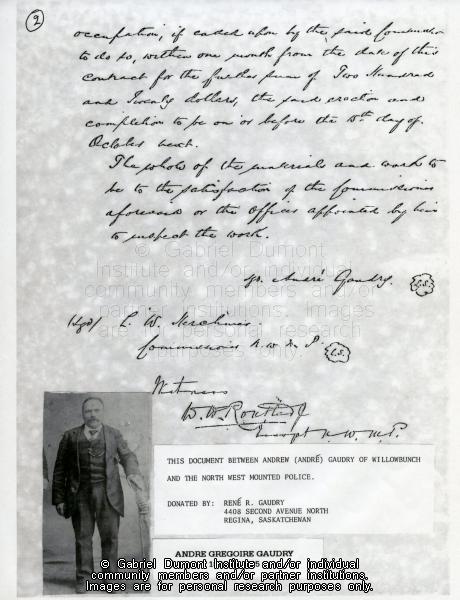 2
occupation, if called upon by the said Commissioner
to do so, within one month from the date of this
contract for the further sum of Two Hundred
and Twenty dollars, the said erection and
completion to be on or before the 15th day of
October next.
The whole of the materials and work to
be to the satisfaction of the Commissioner
aforesaid or the Officer appointed by him
to inspect the work.
Sgd. André Gaudry. L.S.
(Sgd) L. W. Herchmer
Commissioner N. W. M. P. L.S.
Witness
W. W. Routledge
Inspt N. W. M. P.
© Gabriel Dumont
Institute and/or individual
community members and/or
partner institutions. Images
are for personal research
purposes only.
THIS DOCUMENT BETWEEN ANDREW (ANDRÉ) GAUDRY OF WILLOWBUNCH
AND THE NORTH WEST MOUNTED POLICE.
DONATED BY: RENÉ R. GAUDRY
4408 SECOND AVENUE NORTH
REGINA, SASKATCHEWAN
ANDRE GREGOIRE GAUDRY
© Gabriel Dumont Institute and/or individual
community members and/or partner institutions.
Images are for personal research purposes only.